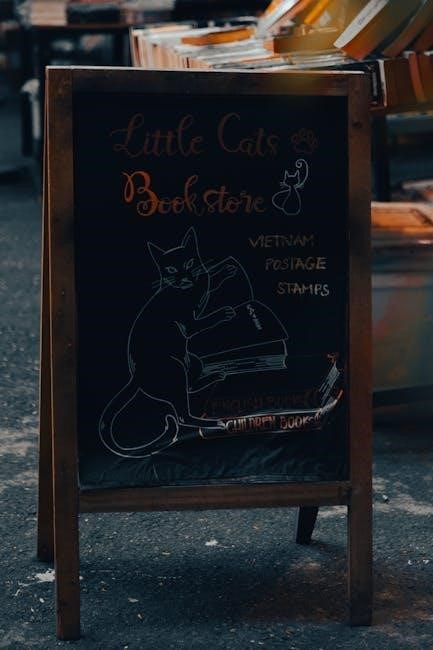 Little Cats
Bookstore
VIETNAM
POSTAGE
STAMPS
ENGLISH BOOKS
CHILDREN BOOKS